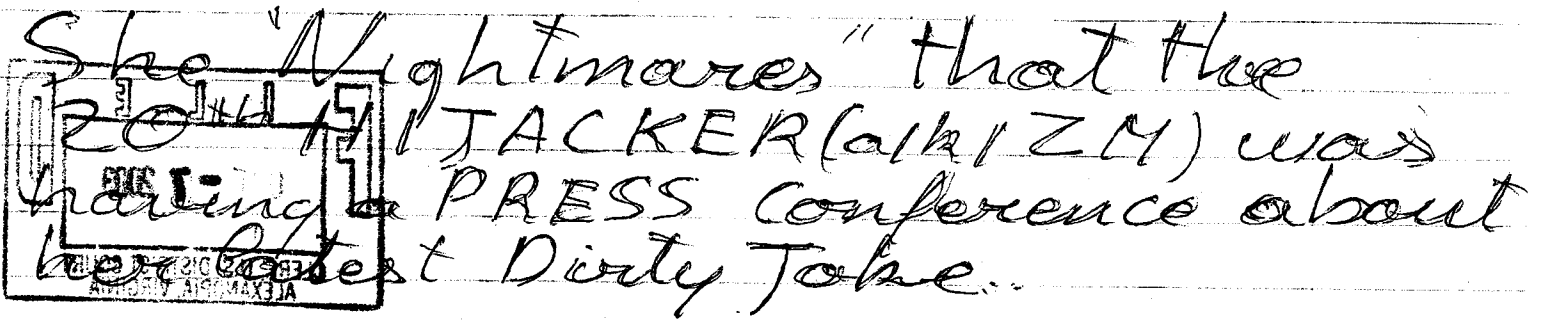 She "Nightmares" that the
20th HIJACKER (a/k/ ZM) was
having a PRESS Conference about
her latest Dirty Joke..